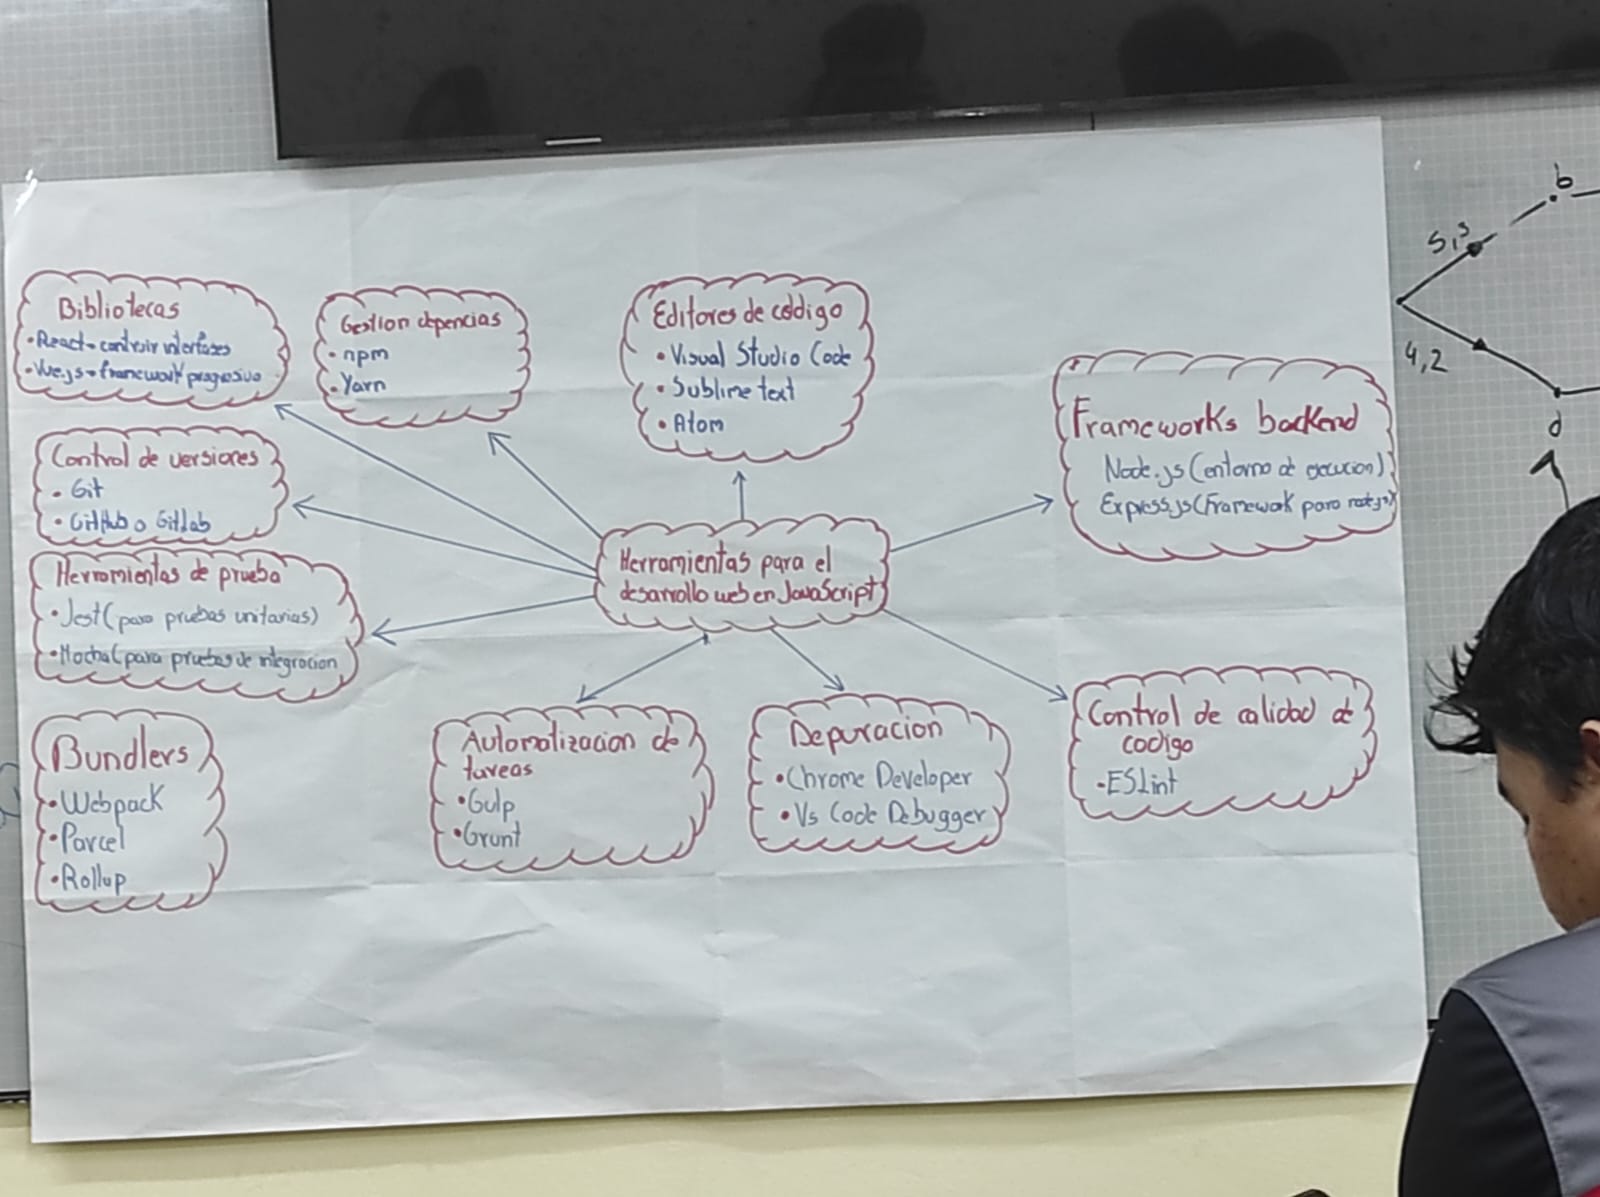 Bibliotecas
•React→ contruir interfazes
•Vue.js→framework progresivo
Gestion depencias
• npm
• Yarn
Editores de código
• Visual Studio Code
• Sublime text
• Atom
Frameworks backend
Node.js (entorno de ejecucion)
Express.js (Framework para node.js)
Control de versiones
• Git
• GitHub o Gitlab
Herramientas para el
desarrollo web en JavaScript
Herramientas de prueba
•Jest (para pruebas unitarias)
•Mocha (para pruebas de integracion
Bundlers
•Webpack
•Parcel
•Rollup
Automatizacion de
tareas
•Gulp
•Grunt
Depuracion
•Chrome Developer
•Vs Code Debugger
Control de calidad de
codigo
•ESLint
b
5,3
4,2
d